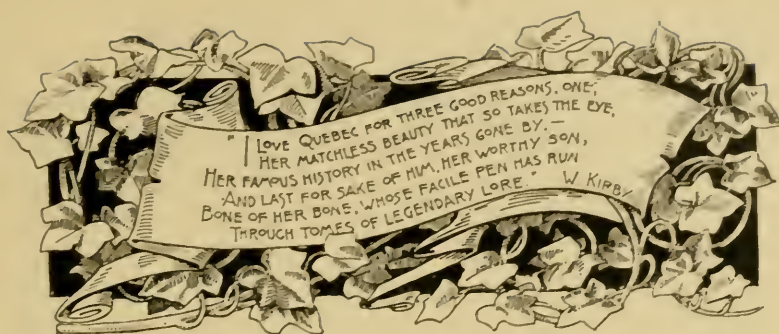 "I LOVE QUEBEC FOR THREE GOOD REASONS, ONE,
HER MATCHLESS BEAUTY THAT SO TAKES THE EYE,
HER FAMOUS HISTORY IN THE YEARS GONE BY.—
AND LAST FOR SAKE OF HIM, HER WORTHY SON,
BONE OF HER BONE, WHOSE FACILE PEN HAS RUN
THROUGH TOMES OF LEGENDARY LORE." W. KIRBY